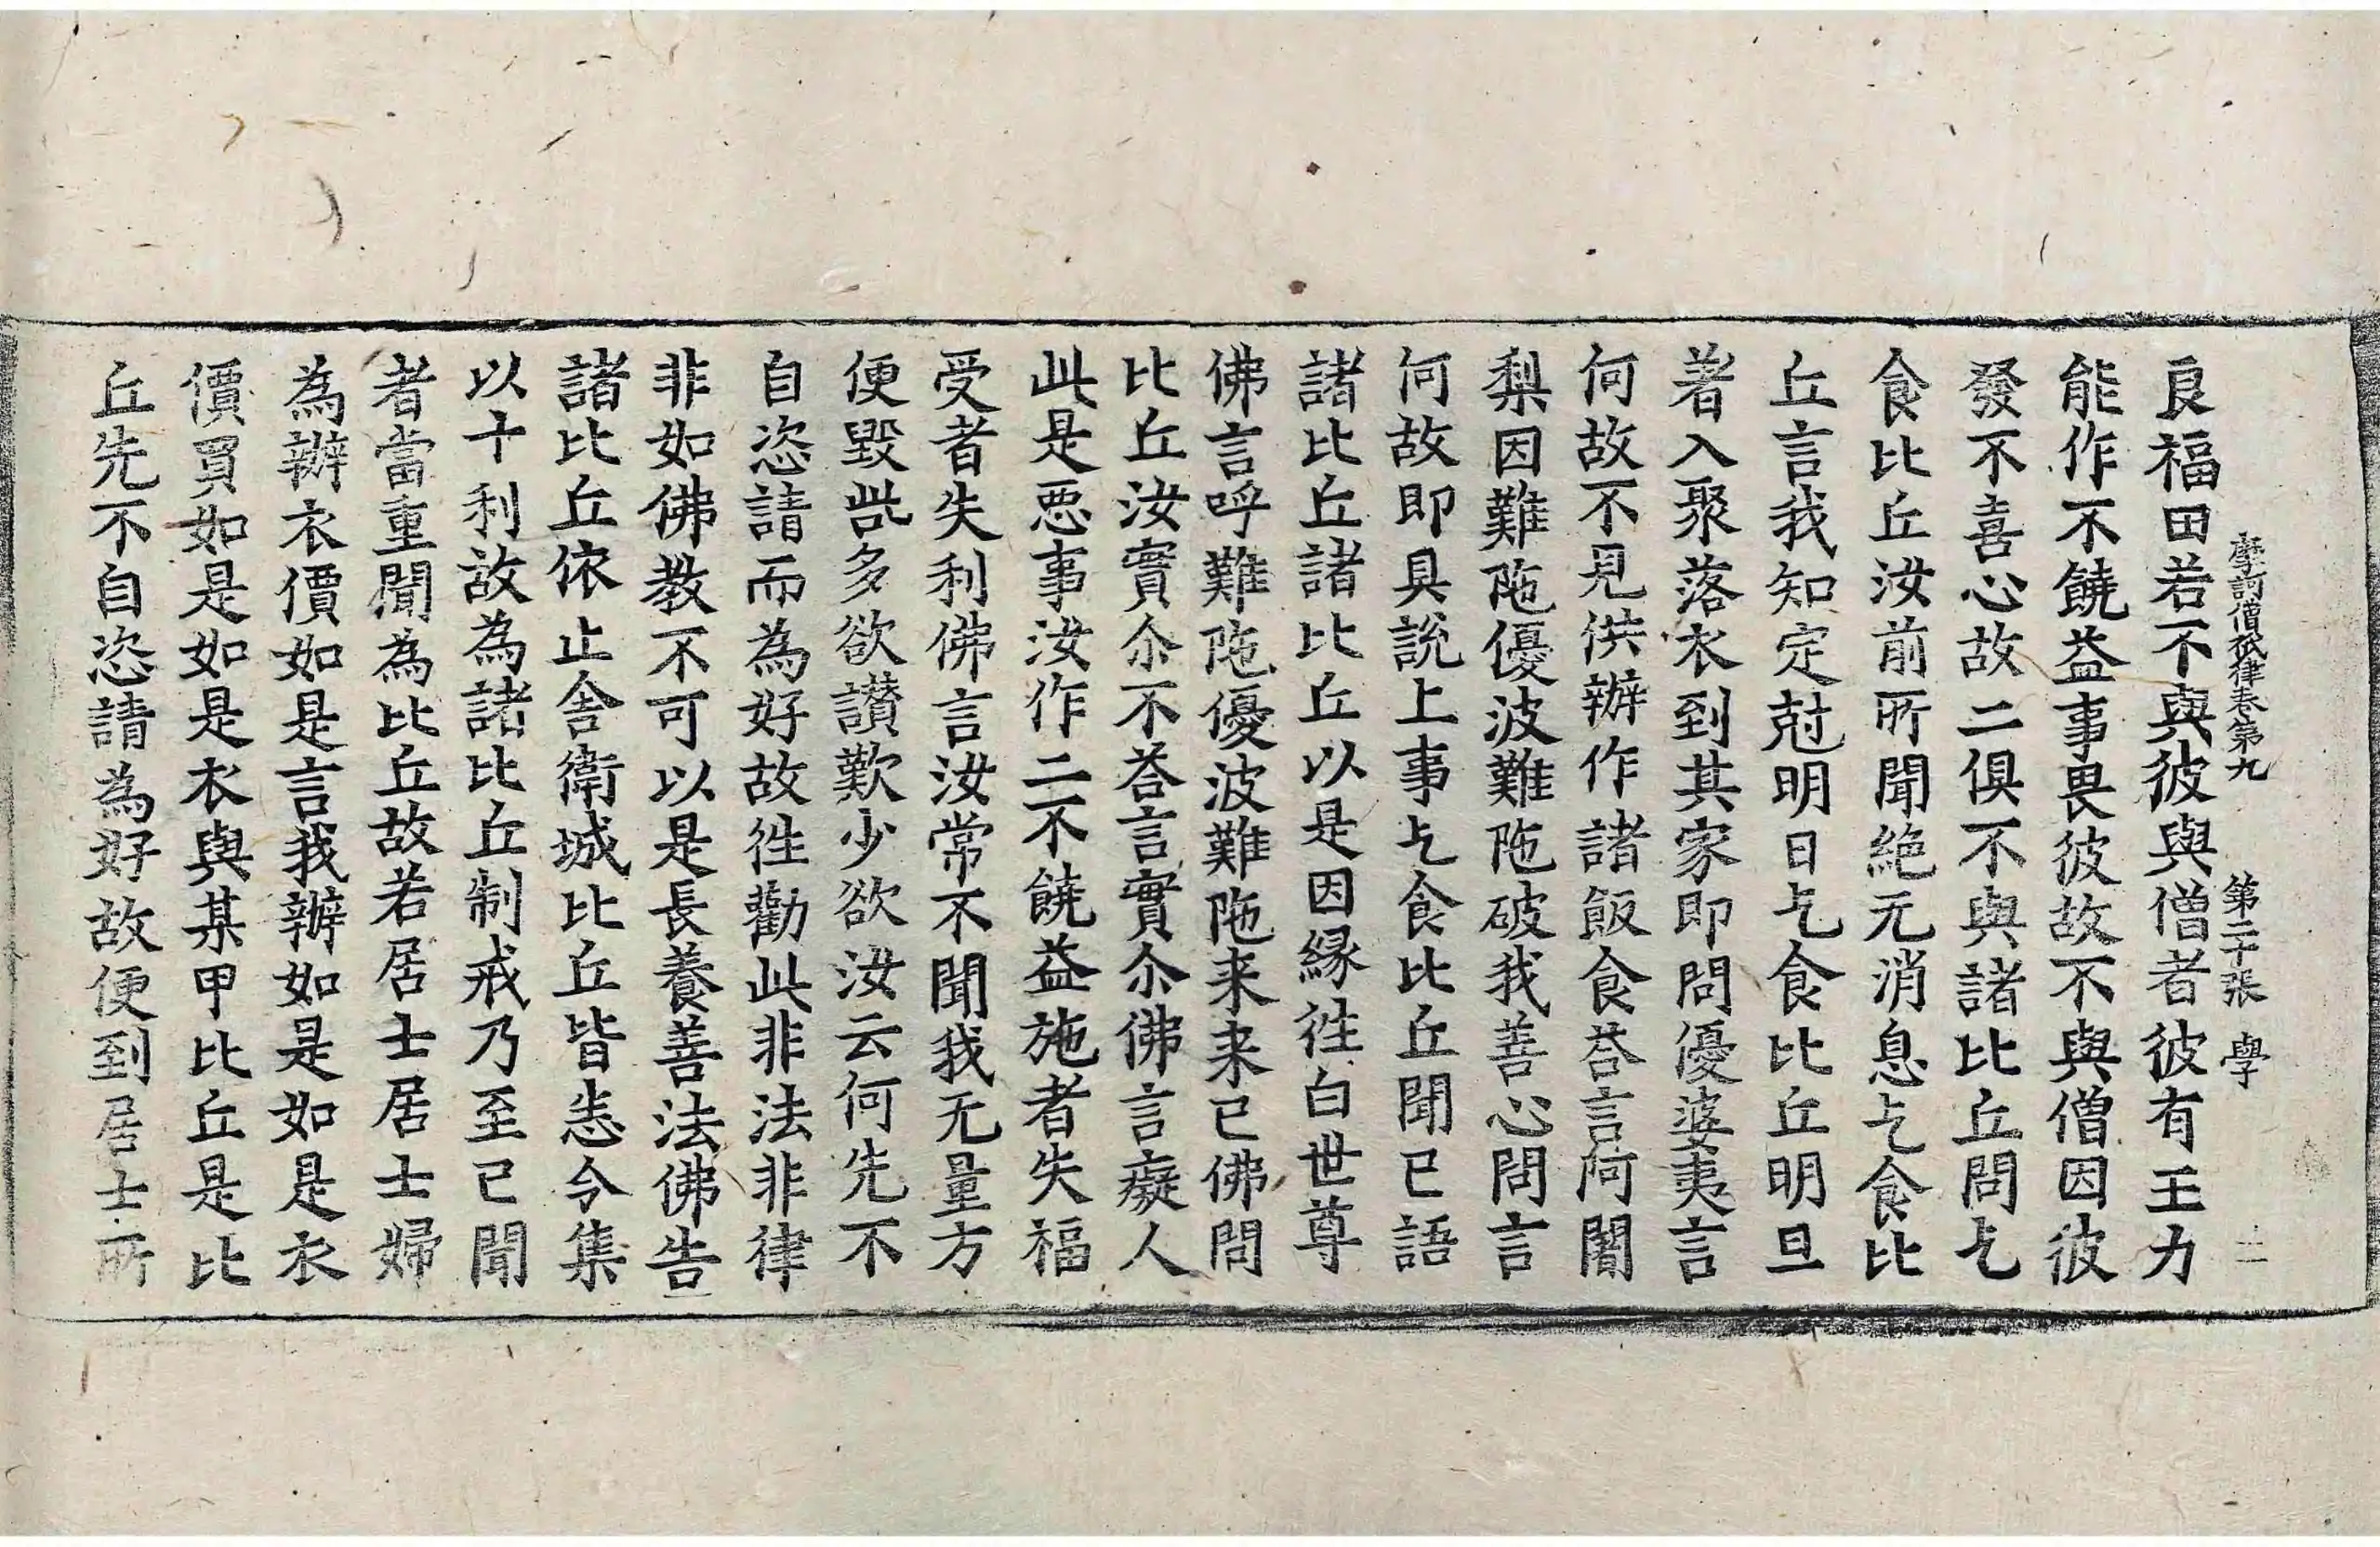 摩訶僧祇律卷第九　第二十張　學
良福田若不與彼與僧者彼有王力
能作不饒益事畏彼故不與僧因彼
發不喜心故二俱不與諸比丘問乞
食比丘汝前所聞絶无消息乞食比
丘言我知定尅明日乞食比丘明旦
著入聚落衣到其家即問優婆夷言
何故不見供辦作諸飯食荅言阿闍
梨因難陁優波難陁破我善心問言
何故即具說上事乞食比丘聞已語
諸比丘諸比丘以是因縁徃白世尊
佛言呼難陁優波難陁来来已佛問
比丘汝實尒不荅言實尒佛言癡人
此是惡事汝作二不饒益施者失福
受者失利佛言汝常不聞我无量方
便毀呰多欲讃歎少欲汝云何先不
自恣請而為好故徃勸此非法非律
非如佛教不可以是長養善法佛告
諸比丘依止舍衛城比丘皆悉令集
以十利故為諸比丘制戒乃至已聞
者當重聞為比丘故若居士居士婦
為辦衣價如是言我辦如是如是衣
價買如是如是衣與某甲比丘是比
丘先不自恣請為好故便到居士所